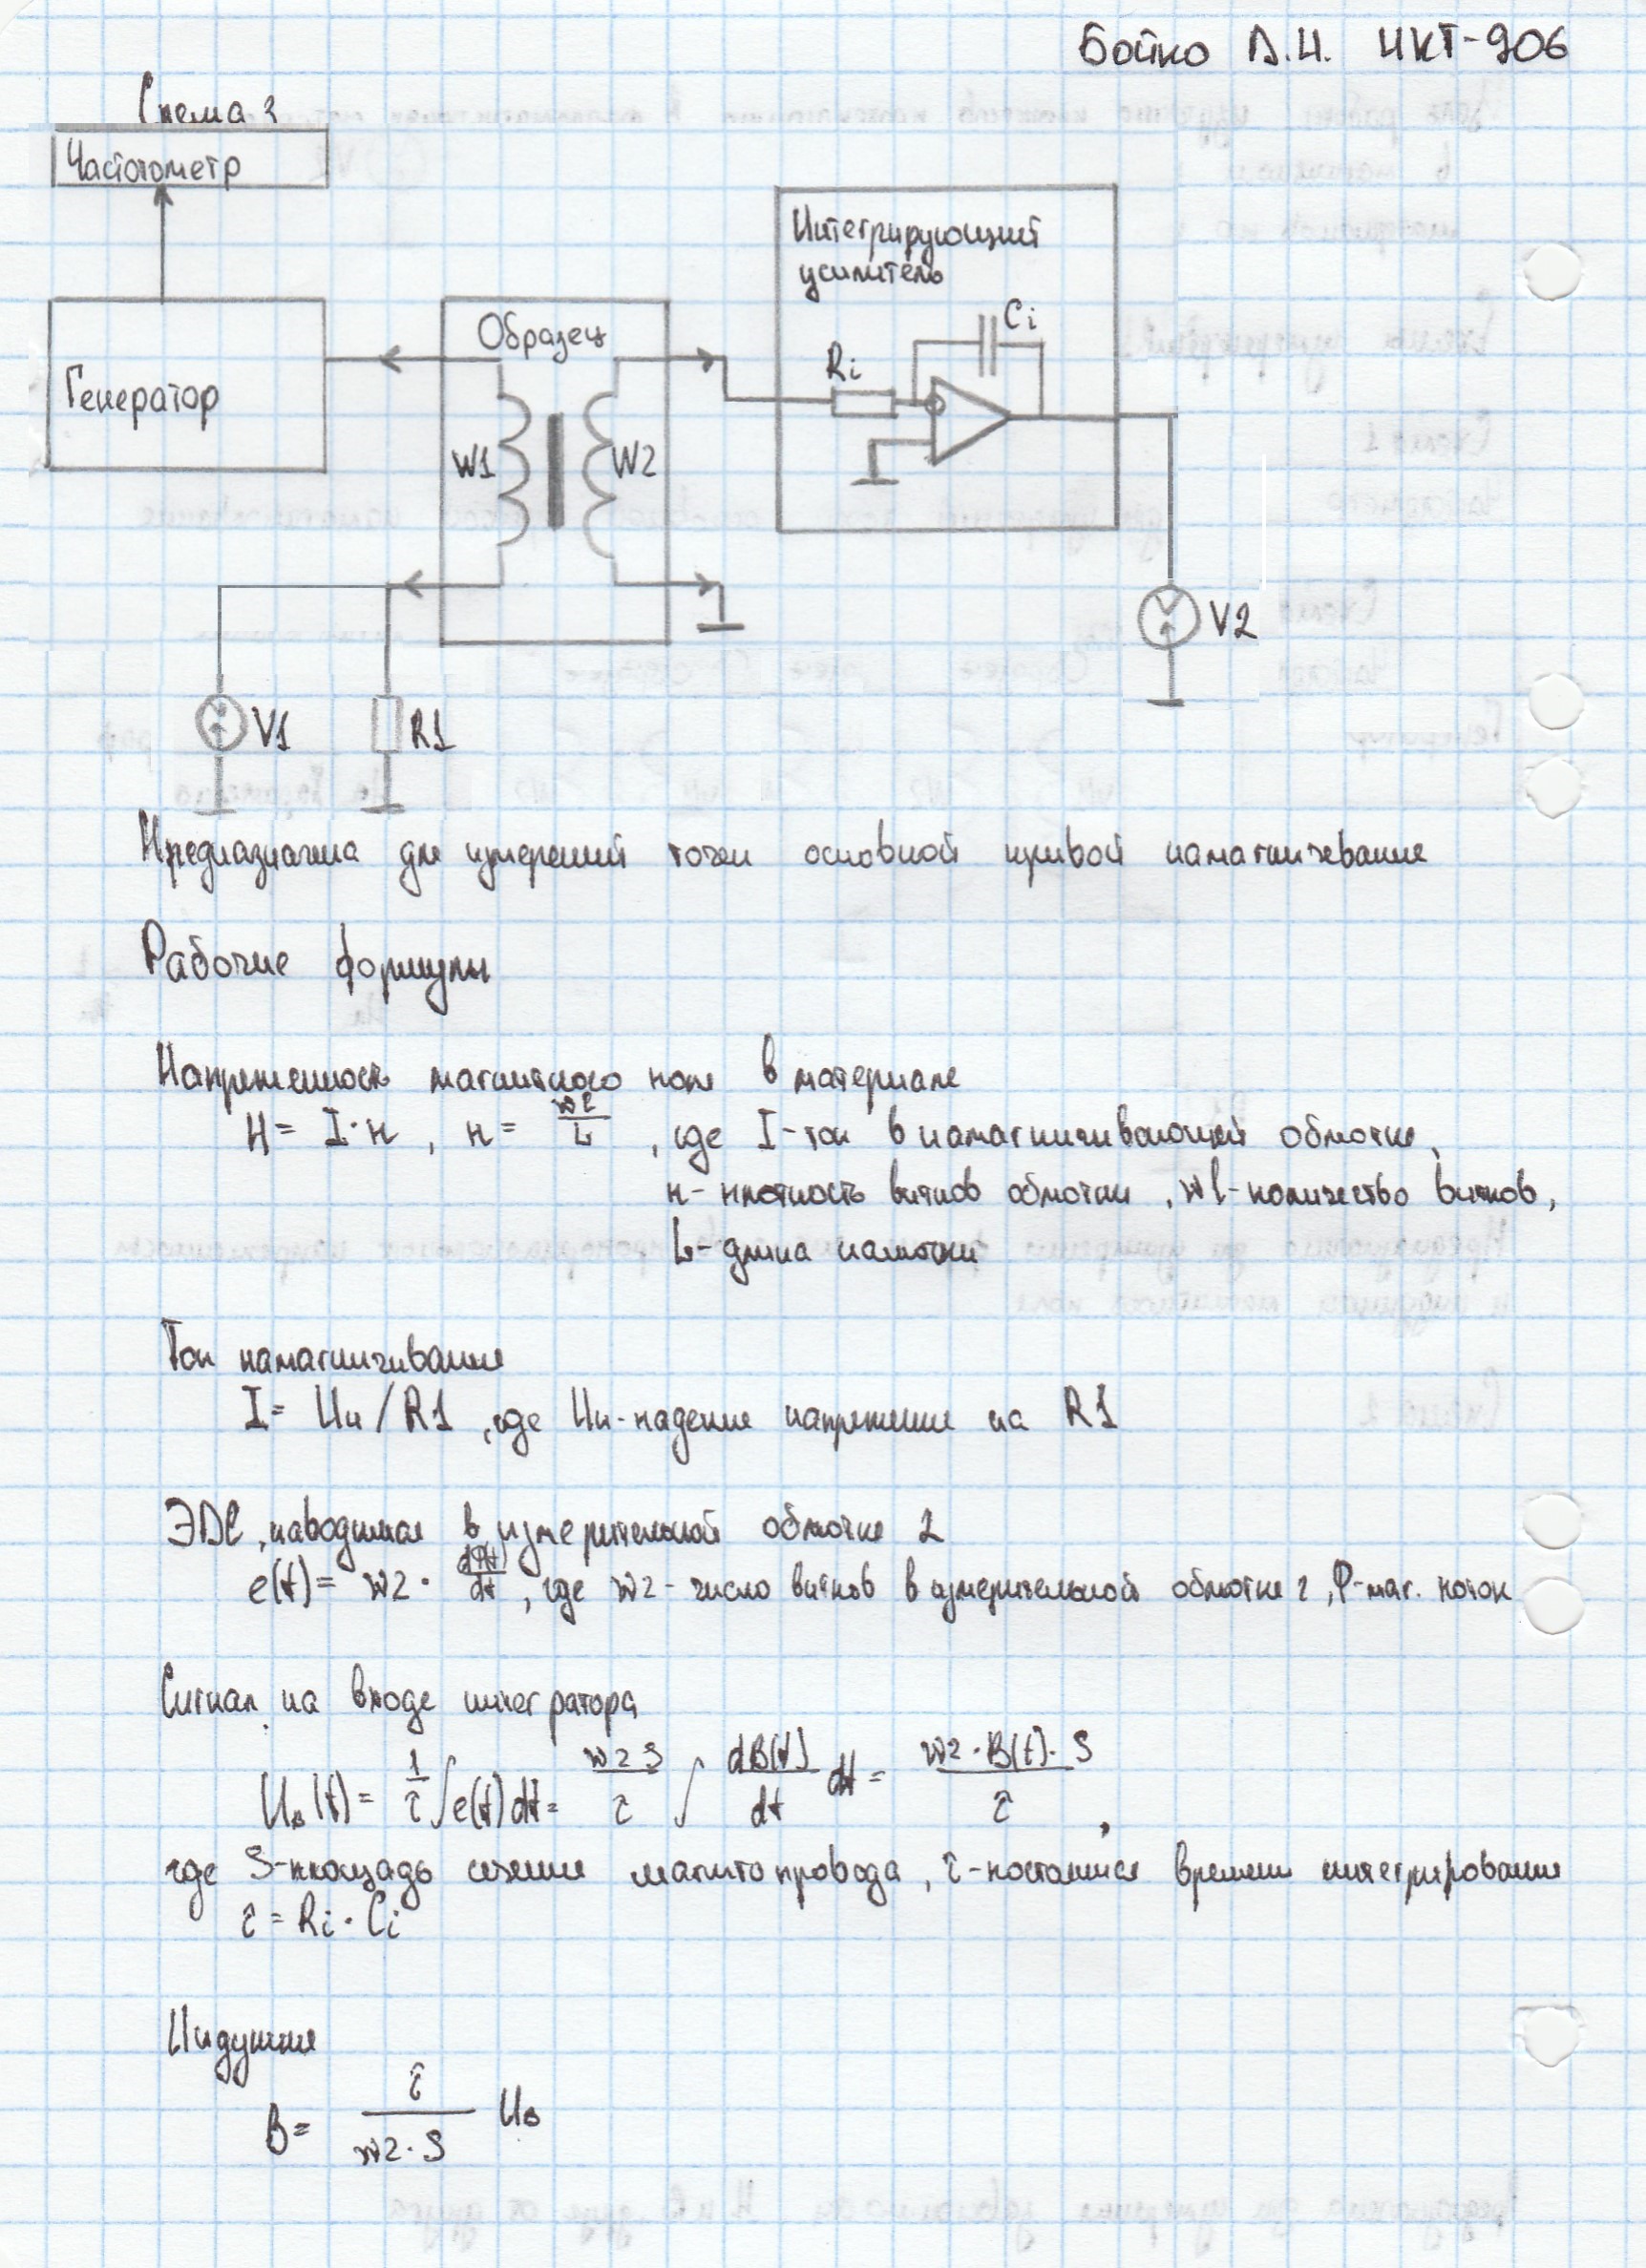 Бойко Д.И. ИКТ-906
Схема 3
Частотометр
Генератор
Образец
W1
W2
Интегрирующий
усилитель
Ri
Ci
V2
V1
R1
Предназначена для измерений точек основной кривой намагничивание
Рабочие формулы
Напряженность магнитного поля в материале
H = I·н, н = w1/L, где I-ток в намагничивающей обмотке,
н-плотность витков обмотки, w1-количество витков,
L-длина намотки
Ток намагничивание
I = Uн/R1, где Uн-падение напряжение на R1
ЭДС, наводимая в измерительной обмотке 2
e(t) = w2· dФ(t)/dt, где w2-число витков в измерительной обмотке 2, Ф-маг. поток
Сигнал на входе интегратора
Uв(t) = 1/τ ∫e(t)dt = w2 S/τ ∫ dB(t)/dt dt = w2·B(t)·S/τ,
где S-площадь сечение магнитопровода, τ-постоянная времени интегрирование
τ = Ri·Ci
Индукция
B = τ/w2·S Uв